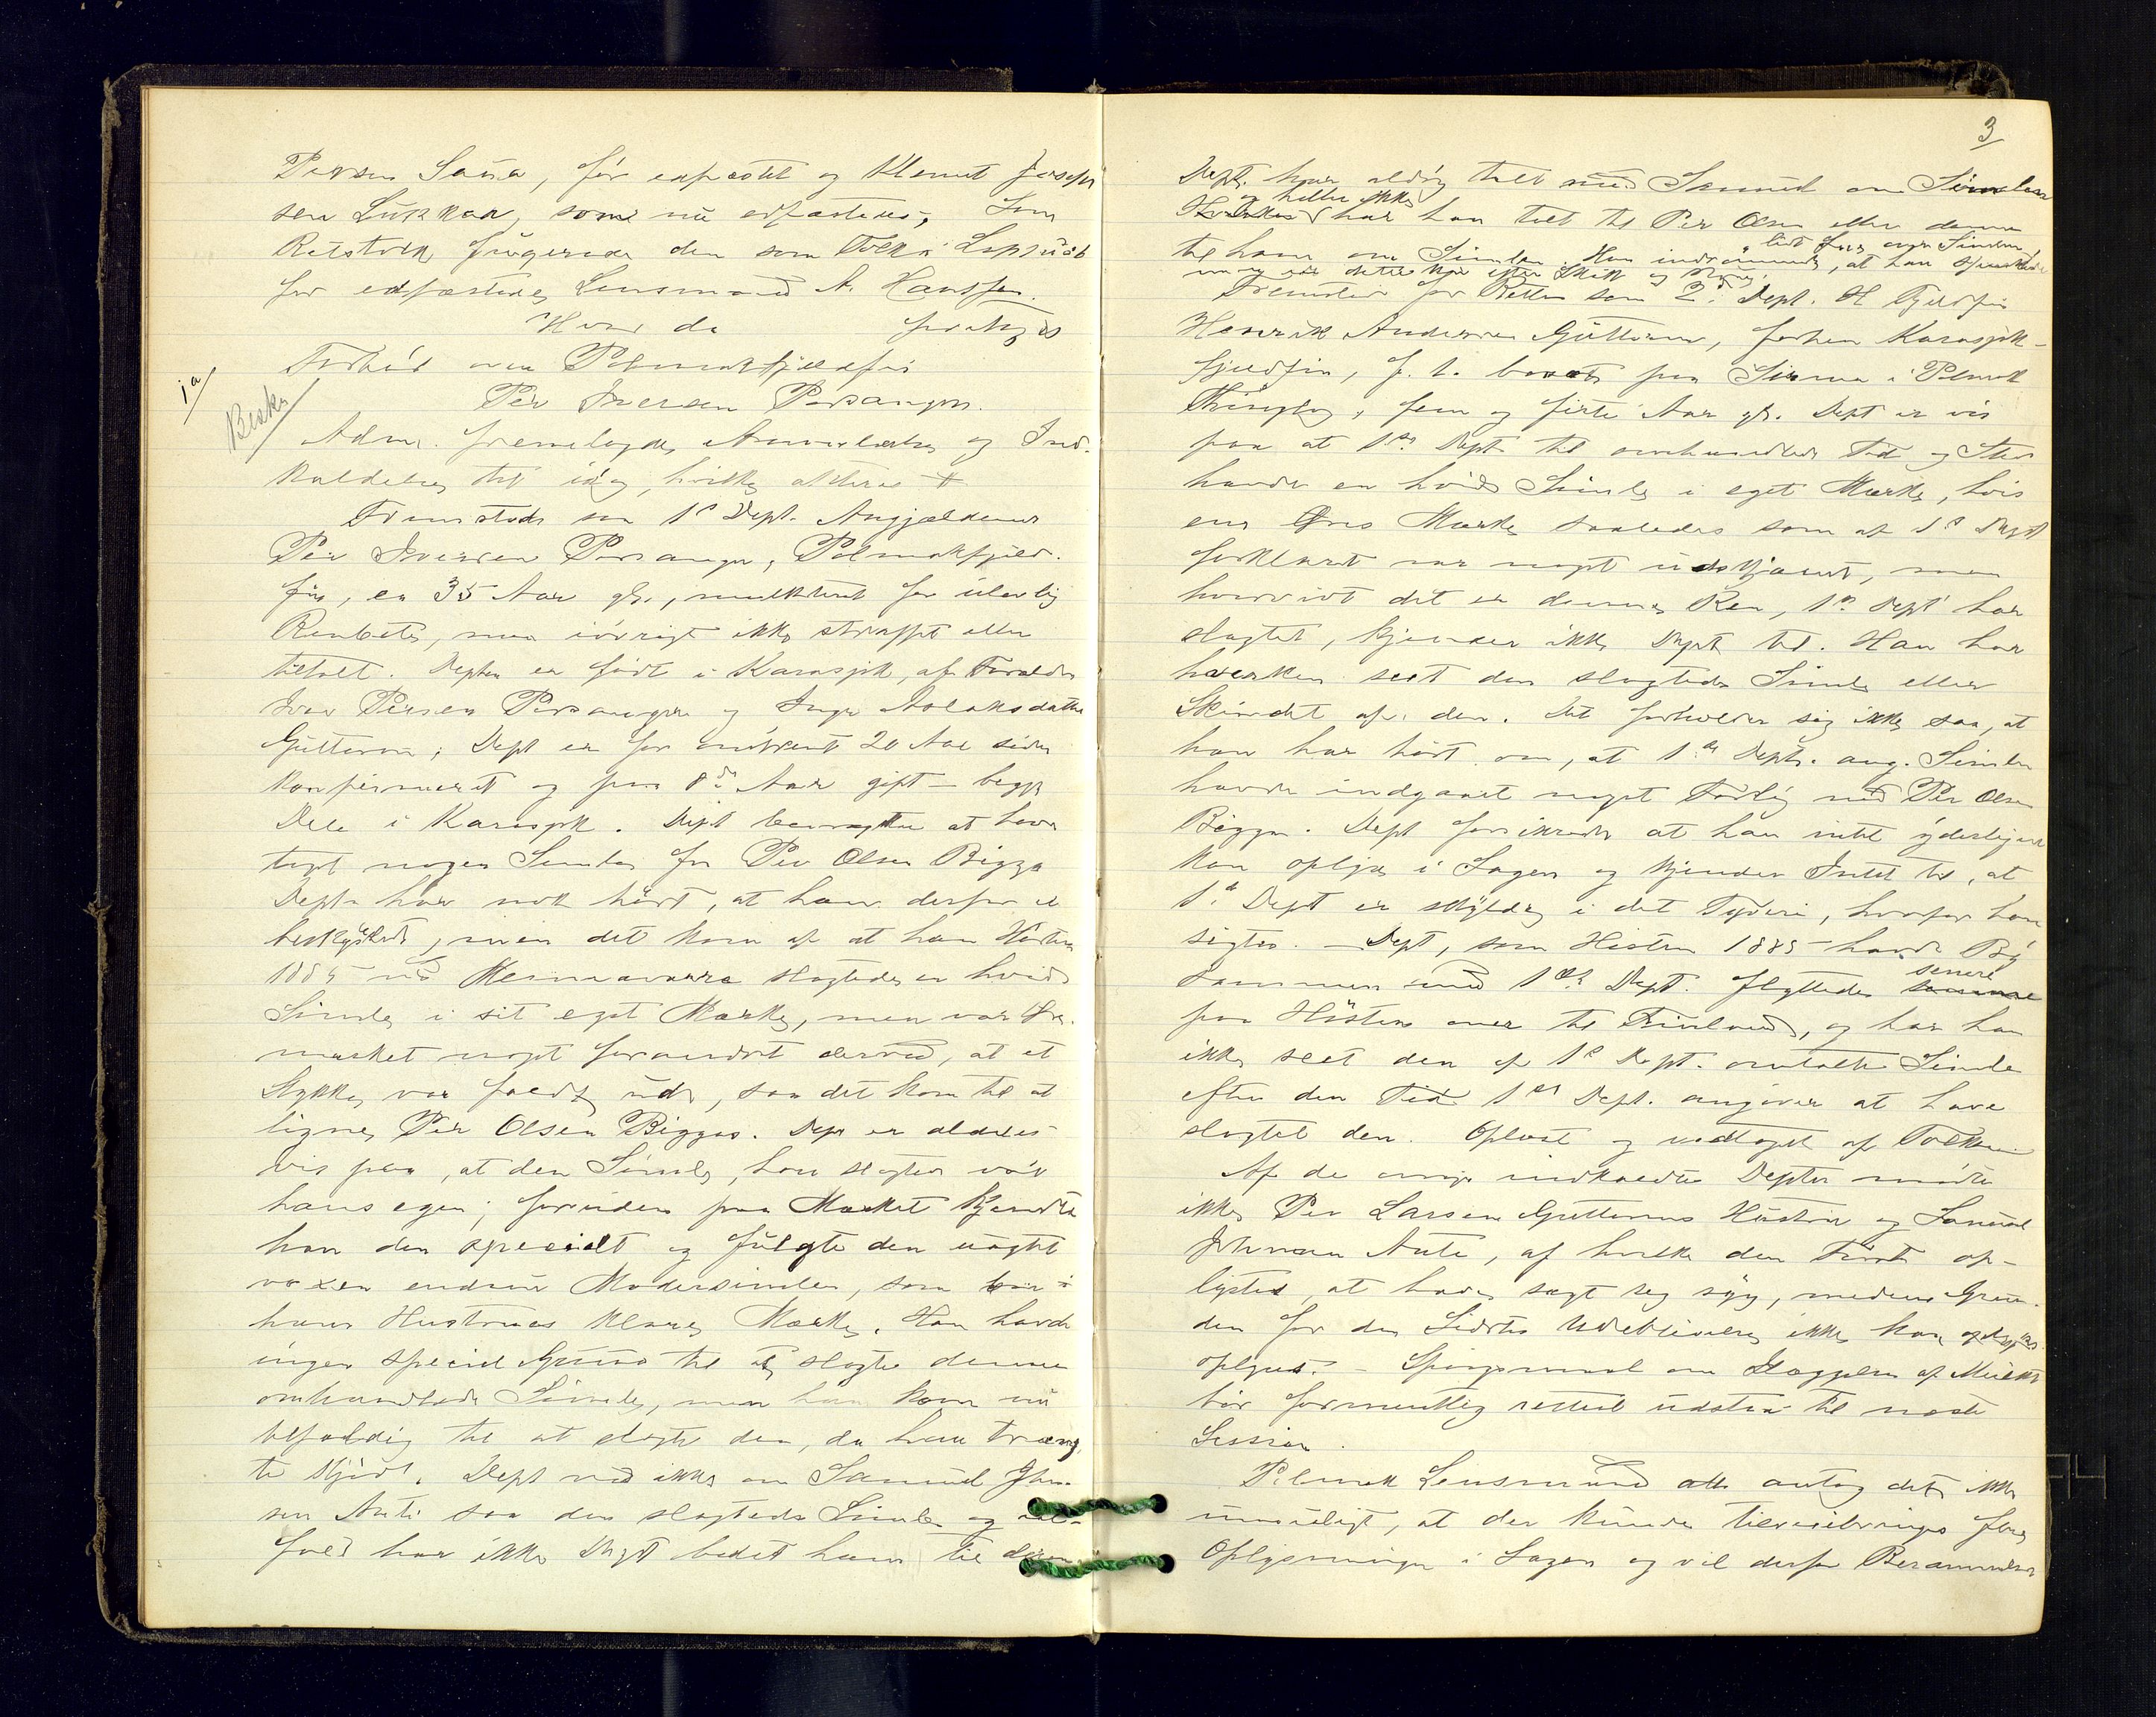 Persen Saua, før edfæstet og Klemet Josefs
sen Lukkar, som nu edfæstedes; Som
Retstolk fungerede den som Tolk i Lapsprog
før edfæstede Lensmand A. Hanssen.
Hvor da foretoges
1a/ Forhør over Polmakfjeldfin
Besk./ Per Iversen Porsanger.
Adm. fremlagde Anmeldelse og Ind-
kaldelse til idag, hvilke akteres
Fremstod som 1ste Dept. Angjældende
Per Iversen Porsanger, Polmakfjeld-
fin, er 35 Aar gl., mulkteret for ulovlig
Renbete, men iøvrigt ikke straffet eller
tiltalt. Depten er født i Karasjok, af Forældre
Iver Persen Porsanger og Inga Aslaksdatter
Guttorm; Dept er for omtrent 20 Aar siden
konfirmeret og paa 8de Aar gift – begge
Dele i Karasjok. Dept benægter at have
taget nogen Simle for Per Olsen Bigga
Dept har nok hørt, at han derfor er
beskyldt, men det kom af at han Høsten
1885 ved slagtede en hvid
Simle i sit eget Mærke, men var Øre-
mærket noget forandret derved, at et
Stykke var faldt ud, saa det kom til at
ligne Per Olsen Biggas. Dept er aldeles
vis paa, at den Simle, han slagtede var
hans egen; foruden paa Mærket kjendte
han den specielt og fulgte den
voxen endnu Modersimlen, som var i
hans Hustrues klare Mærke. Han havde
ingen speciel Grund til at slagte denne
omhandlede Simle, men han kom nu
tilfældig til at slagte den, da han træng-
te Kjød. Dept ved ikke om Samuel John-
sen Anti saa den slagtede Simle og
fald har ikke Dept bedet ham tie dermed
3
Dept. har aldrig talt med Samuel om Simlen
og heller ikke
har han talt til Per Olsen eller denne
til ham om Simlen. Han indrømmede, at han
Fremstod for Retten som 2. Dept. Fjeldfin
Henrik Andersen Guttorm, forhen Karasjok-
fjeldfin, f. t. boende paa Sirma i Polmak
Thinglag, fem og firti Aar gl. Dept er vis
paa at 1ste Dept. til omhandlede Tid og Sted
havde en hvid Simle i eget Mærke, hvis
ene Øres Mærke saaledes som af 1ste Dept
forklaret var noget udskjæmt, men
hvorvidt det er denne Ren, 1ste Dept har
slagtet, kjender ikke Dept til. Han har
hverken seet den slagtede Simle eller
Skindet af den. Det forholder sig ikke saa, at
han har hørt om, at 1ste Dept. ang. Simlen
havde indgaaet noget Forlig med Per Olsen
Bigga. Dept forsikrede at han intet yderligere
kan oplyse i Sagen og kjender Intet til, at
1ste Dept er skyldig i det Tyveri, hvorfor han
sigtes. – Dept, som Høsten 1885 havde By
senere
sammen med 1ste Dept. flyttede
paa Høsten over til Finland, og har han
ikke seet den af 1ste Dept. omtalte Simle
efter den Tid 1ste Dept. angiver at have
slagtet den. Oplæst og vedtaget af Tolken
Af de øvrige indkaldte Depter mødte
ikke Per Larsen Guttorms Hustru og Samuel
Johnsen Anti, af hvilke den Første op-
lystes, at have sagt sig syg, medens Grun-
den for den Sidstes Udeblivelse ikke kan
oplyses. – Spørgsmaal om Ilæggelse af Mulkt
bør formentlig rettest udstaa til næste
Session.
Polmak Lensmand antog det ikke
umuligt, at der kunde tilveiebringes flere
Oplysninger i Sagen og vil derfor Berammelse